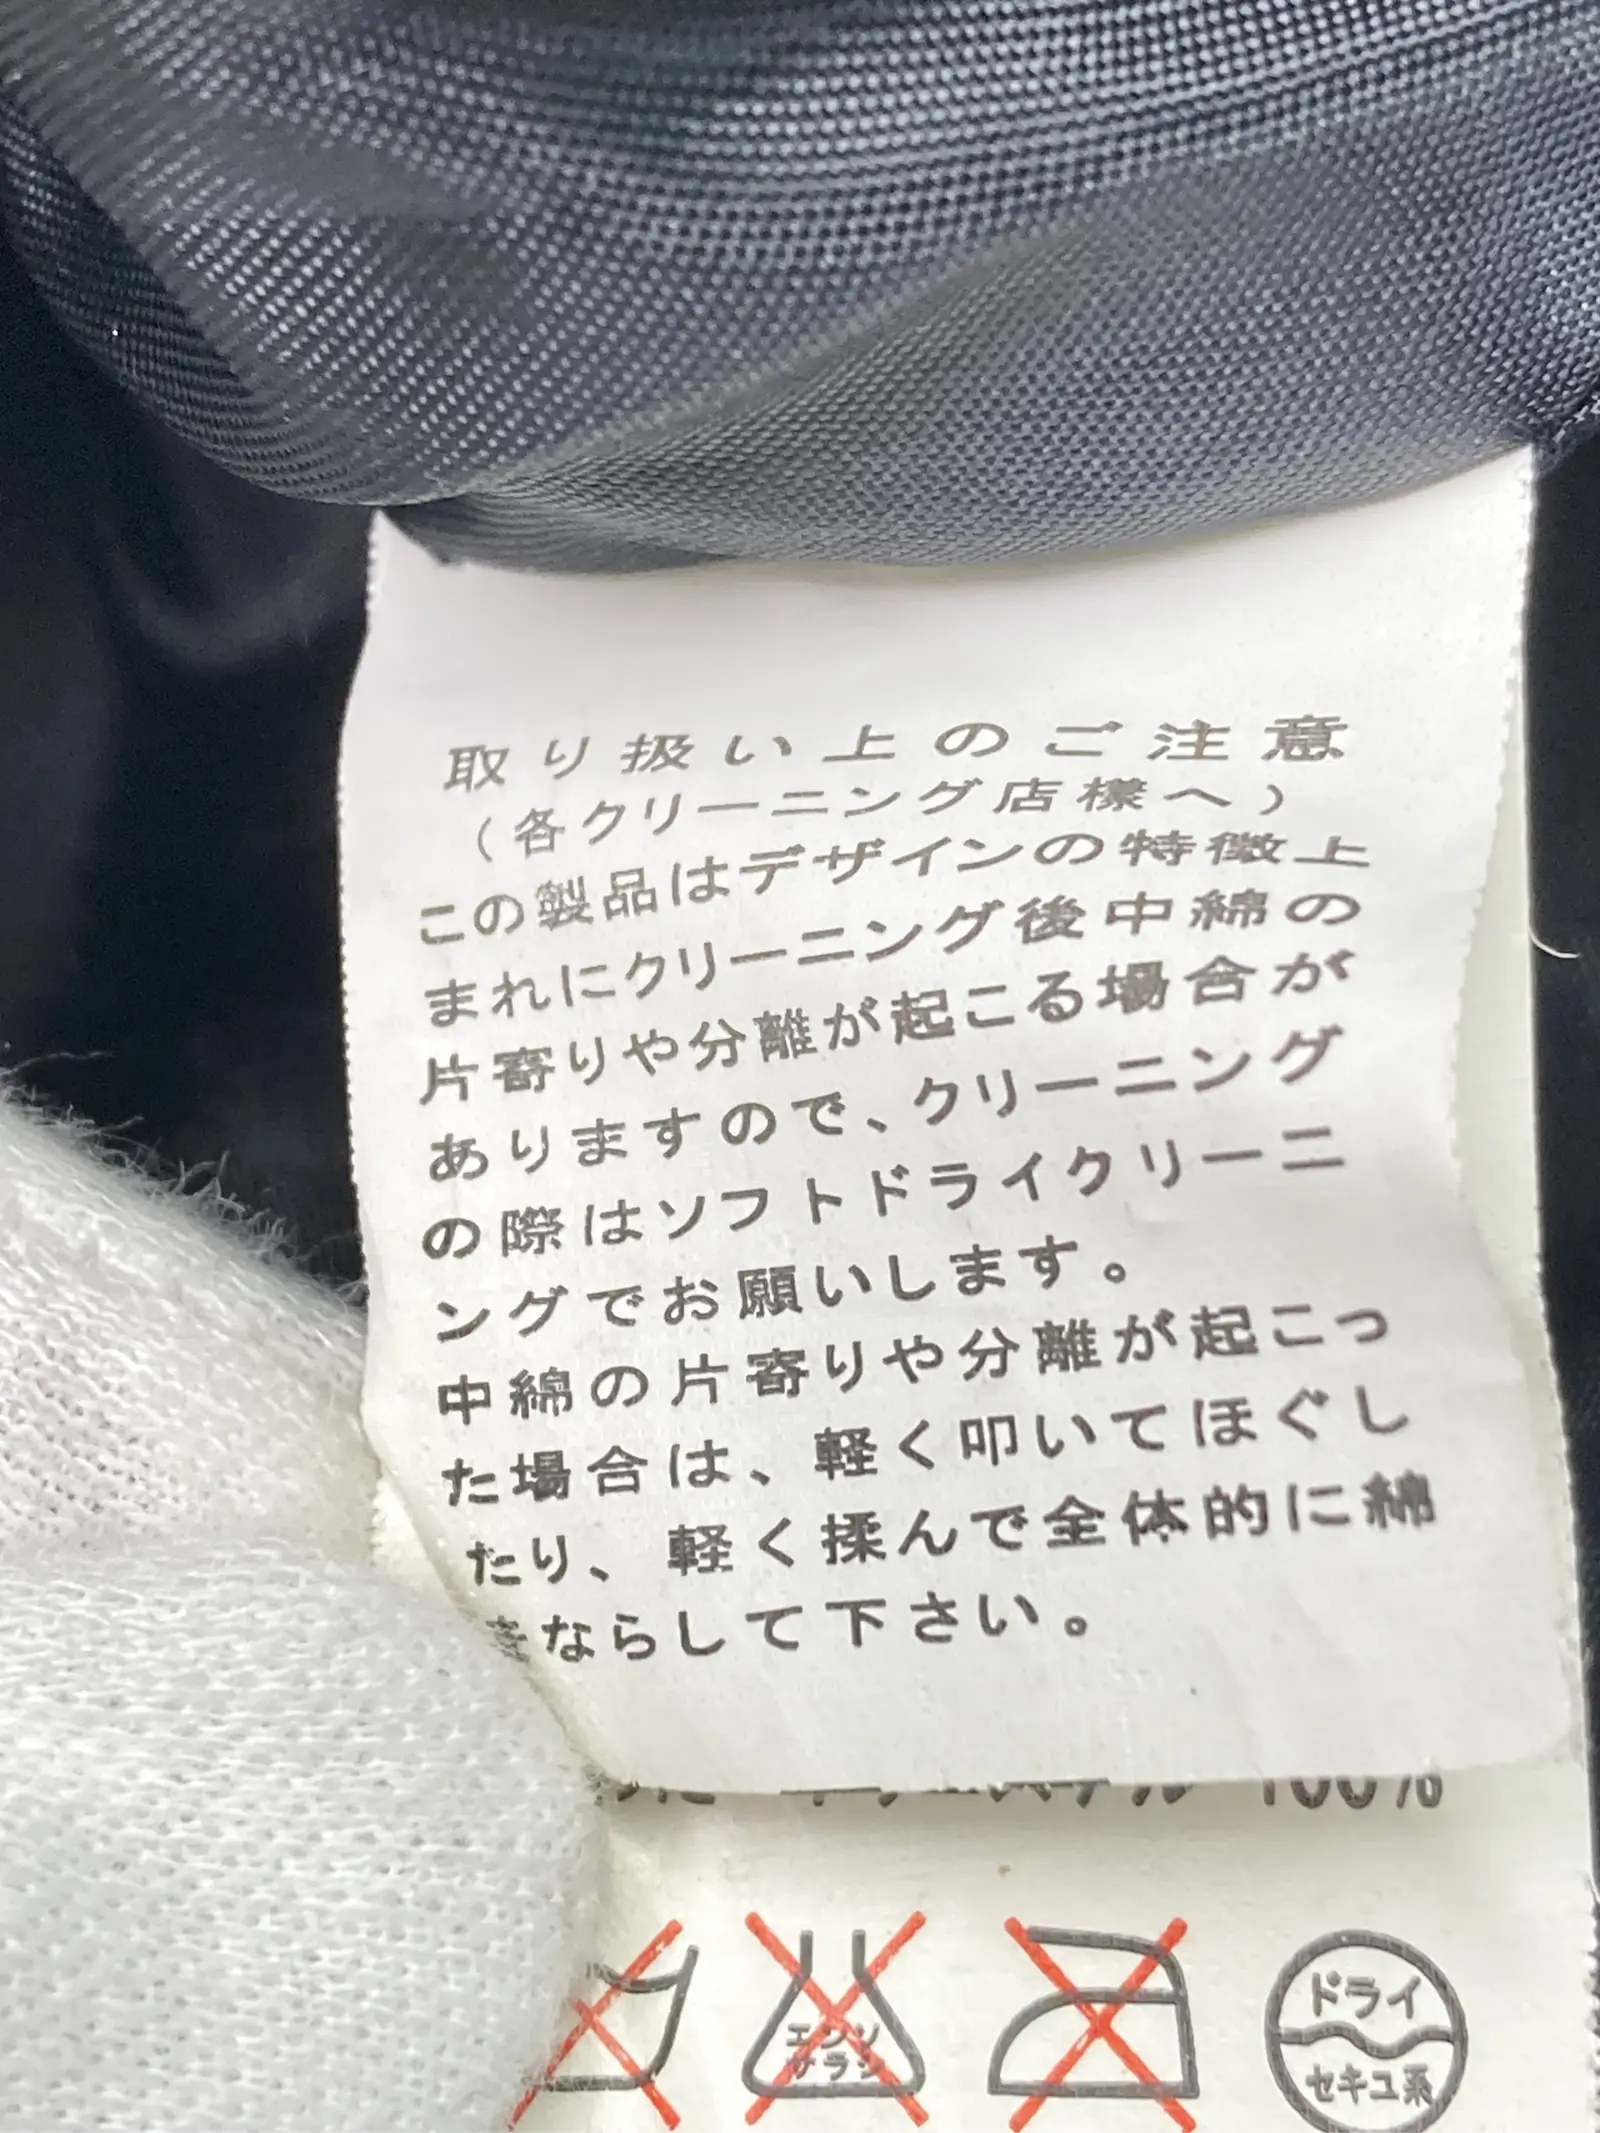 取り扱い上のご注意
(各クリーニング店様へ)
この製品はデザインの特徴上
まれにクリーニング後中綿の
片寄りや分離が起こる場合が
ありますので、クリーニング
の際はソフトドライクリーニ
ングでお願いします。
中綿の片寄りや分離が起こっ
た場合は、軽く叩いてほぐし
たり、軽く揉んで全体的に綿
をならして下さい。
100%
エンソ
サラシ
ドライ
セキユ系